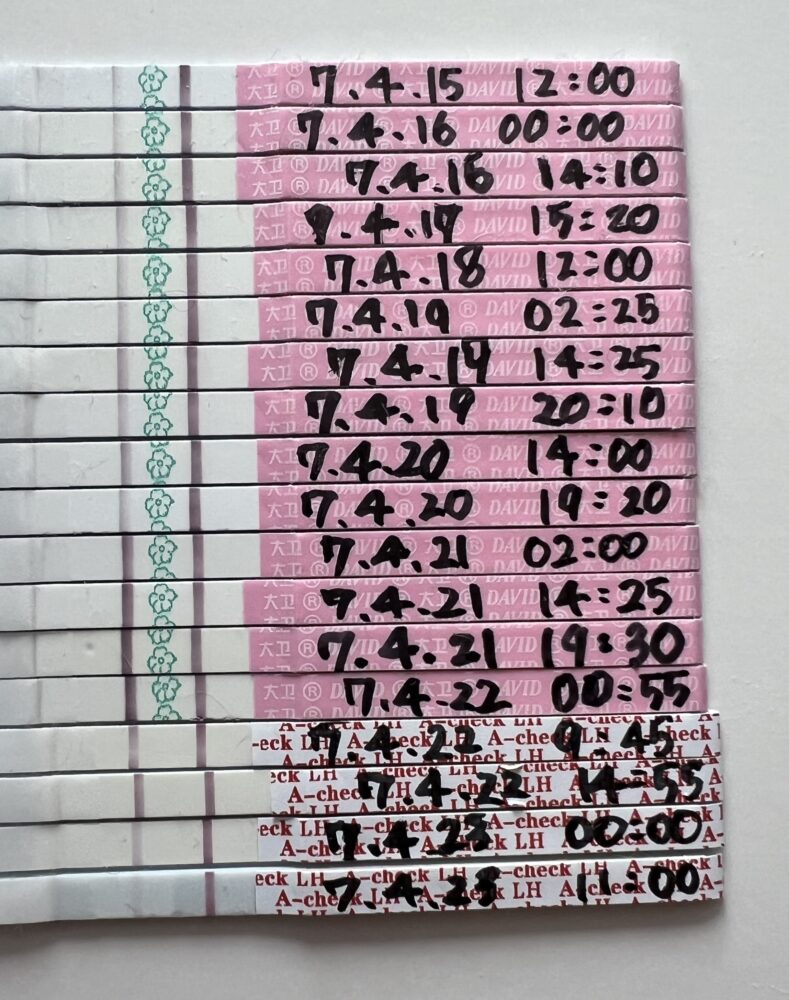 大卫 ® DAVID 7.4.15 12:00
大卫 ® DAVID 7.4.16 00:00
大卫 ® DAVID 7.4.16 14:10
大卫 ® DAVID 7.4.17 15:20
大卫 ® DAVID 7.4.18 12:00
大卫 ® DAVID 7.4.19 02:25
大卫 ® DAVID 7.4.19 14:25
大卫 ® DAVID 7.4.19 20:10
大卫 ® DAVID 7.4.20 14:00
大卫 ® DAVID 7.4.20 19:20
大卫 ® DAVID 7.4.21 02:00
大卫 ® DAVID 7.4.21 14:25
大卫 ® DAVID 7.4.21 19:30
大卫 ® DAVID 7.4.22 00:55
A-check LH 7.4.22 9:45
A-check LH 7.4.22 14:55
A-check LH 7.4.23 00:00
A-check LH 7.4.23 11:00